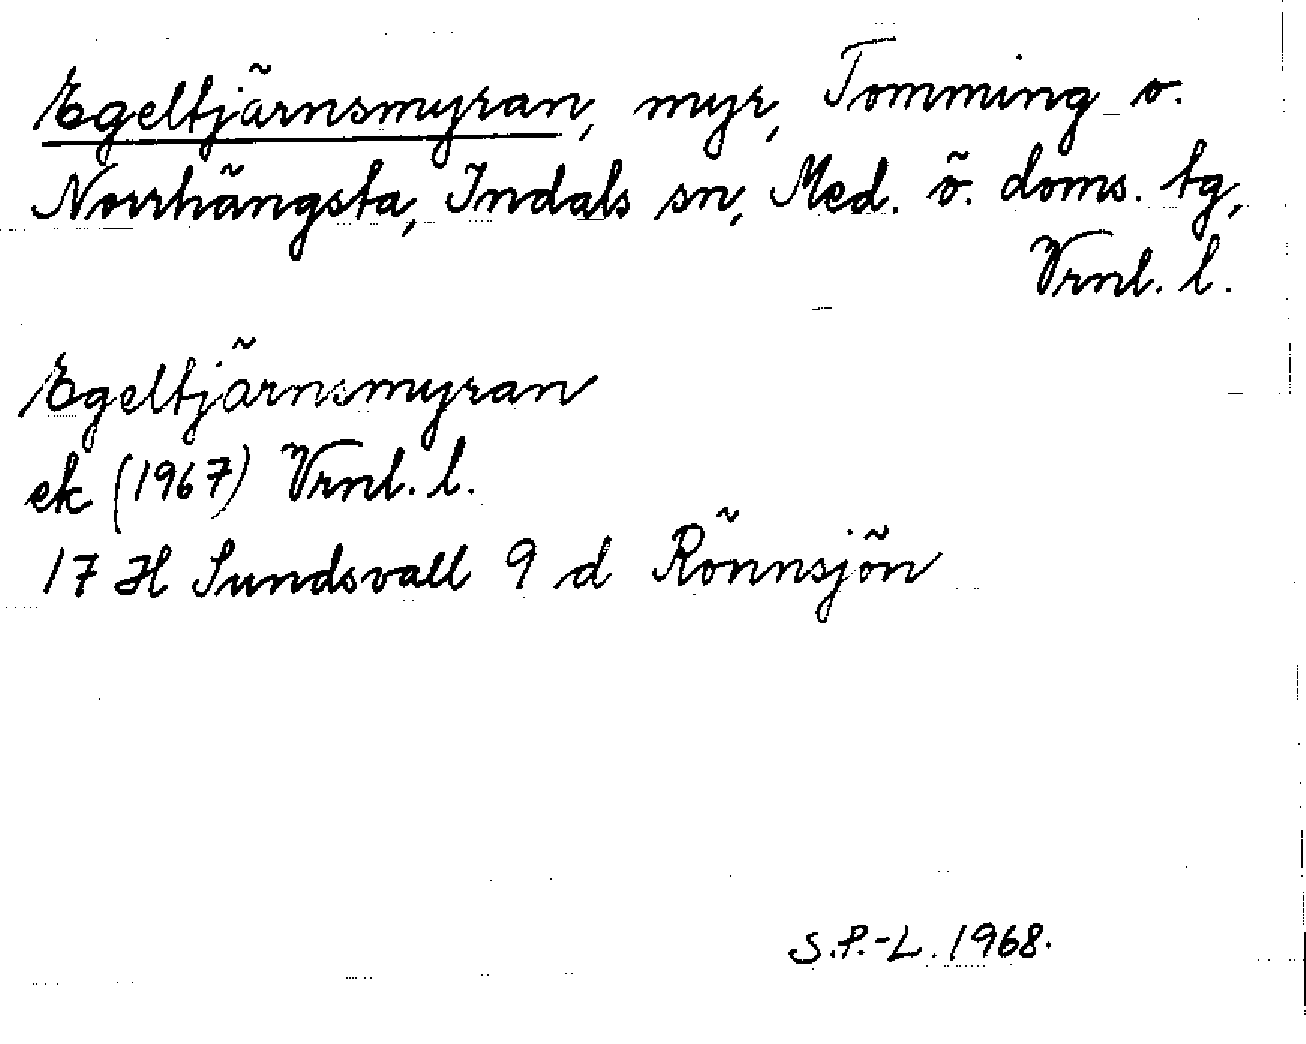 Egeltjärnsmyran, myr, Tomming o.
Norrhängsta, Indals sn, Med. ö. doms. tg,
Vrnl. l.
Egeltjärnsmyran
ek (1967) Vrnl. l.
17 H Sundsvall 9 d Rönnsjön
S.P.-L. 1968.